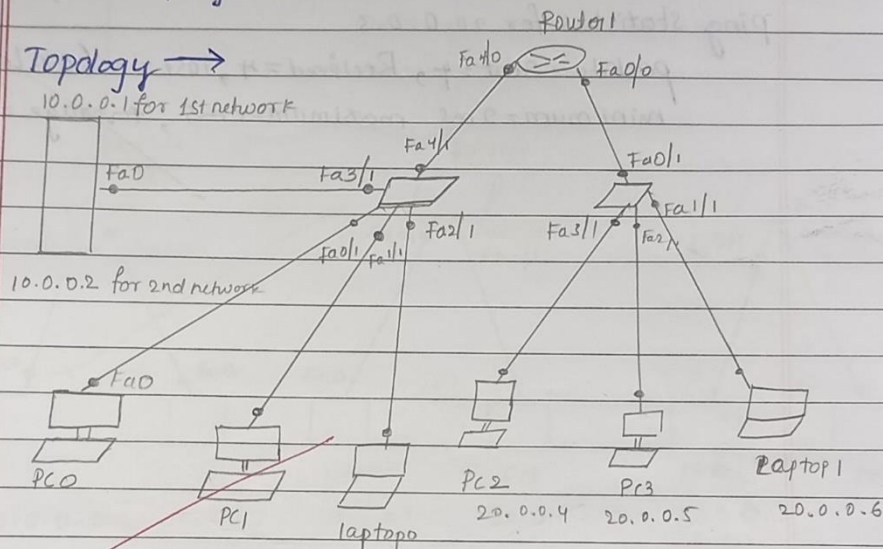 Router1
Topology →
Fa4/0
Fa0/0
10.0.0.1 for 1st network
Fa4/1
Fa0/1
Fa0
Fa3/1
Fa1/1
Fa2/1
Fa3/1
Fa2/1
Fa0/1
Fa1/1
10.0.0.2 for 2nd network
Fa0
PC0
PC1
laptop0
PC2
PC3
Laptop1
20.0.0.4
20.0.0.5
20.0.0.6